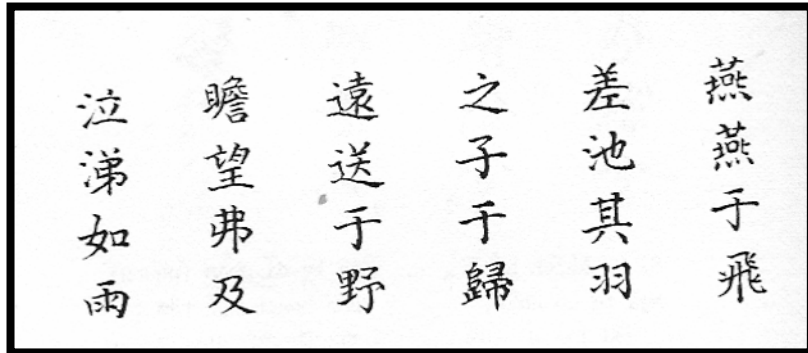 燕燕于飛
差池其羽
之子千歸
遠送于野
瞻望弗及
泣涕如雨